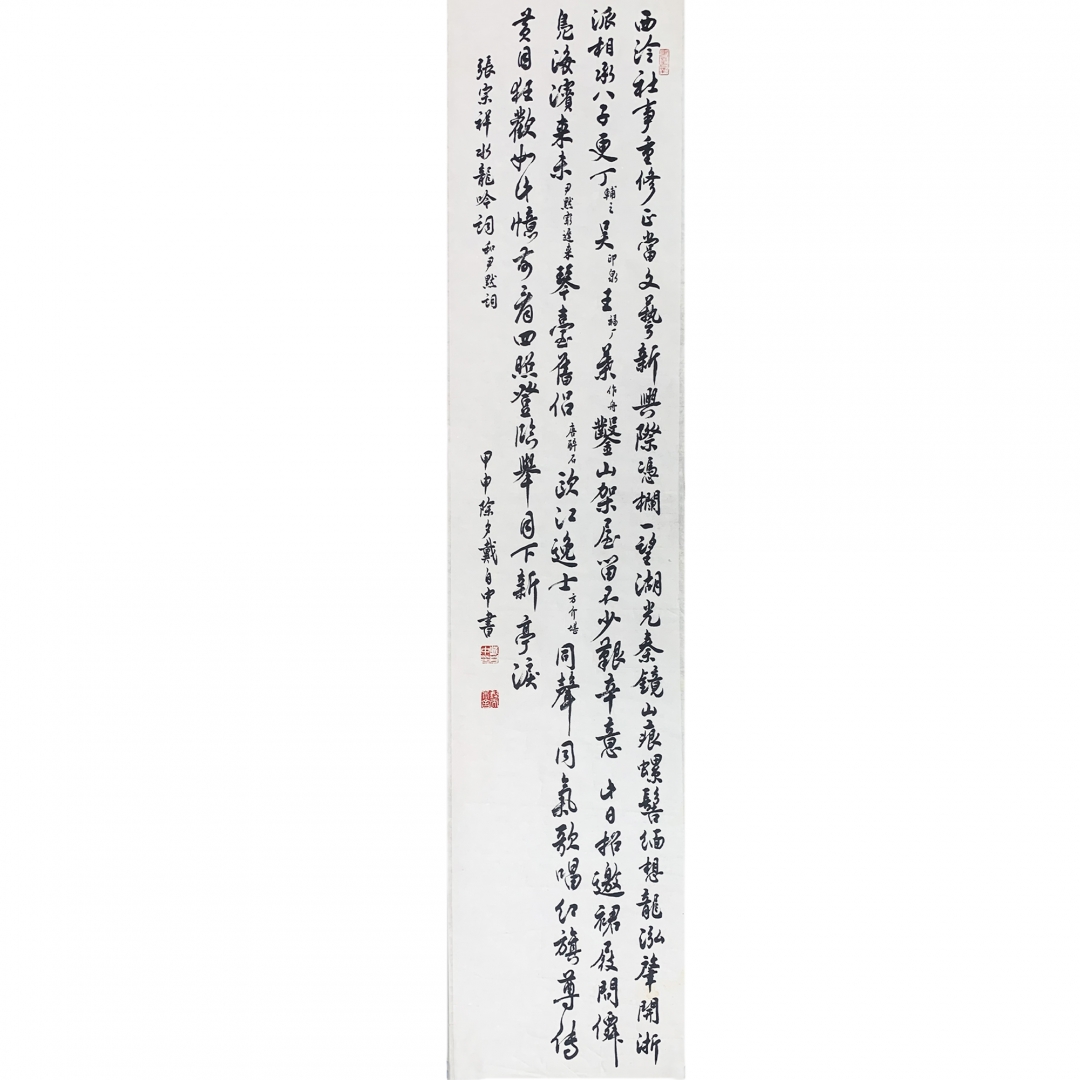 西泠社事重修正當文藝新興際憑欄一望湖光秦鏡山痕螺髻緬想龍泓肇開浙
派相承八子更丁輔之吳印泉王福厂葉作舟鑿山架屋留不少艱辛意此日招邀裙屐問僊
鳧海濱來未尹默家近來琴臺舊侶唐醉石甌江逸士方介堪同聲同氣歌唱紅旗尊傳
黃目狂歡如此憶前看四照登臨舉目下新亭淚
張宗祥水龍吟詞和尹默詞
甲申除夕戴自中書